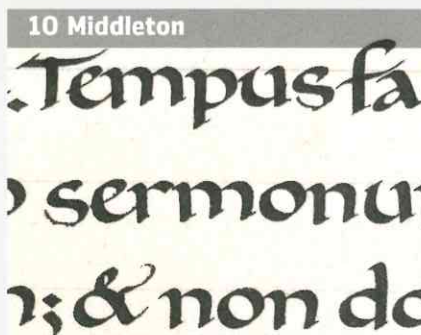 10 Middleton
.Tempus fa
o sermonu
n; & non do